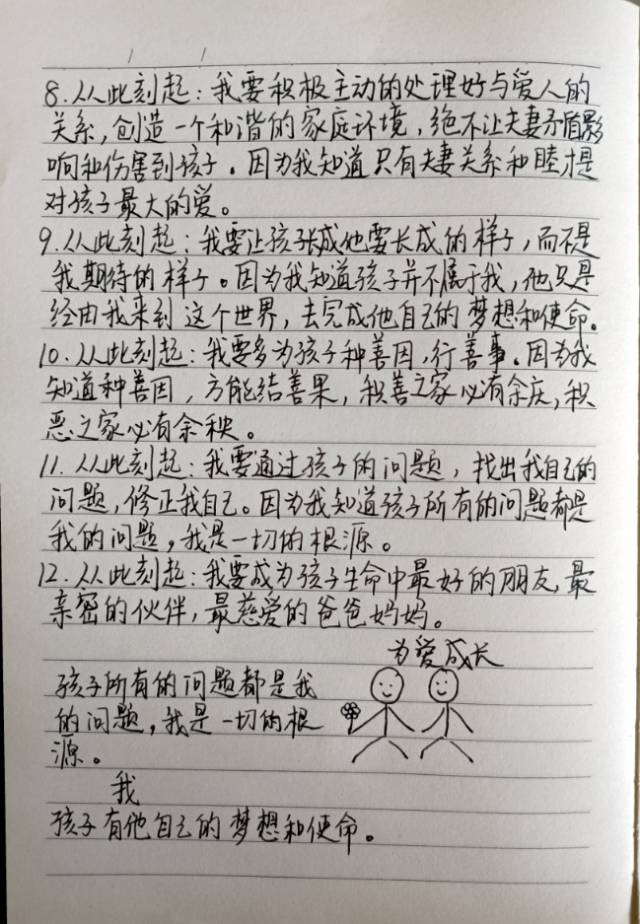 8.从此刻起:我要积极主动的处理好与爱人的
关系,创造一个和谐的家庭环境,绝不让夫妻矛盾影
响和伤害到孩子。因为我知道只有夫妻关系和睦才是
对孩子最大的爱。
9.从此刻起:我要让孩子长成他要长成的样子,而不是
我期待的样子。因为我知道孩子并不属于我,他只是
经由我来到这个世界,去完成他自己的梦想和使命。
10.从此刻起:我要多为孩子种善因,行善事。因为我
知道种善因,方能结善果,积善之家必有余庆,积
恶之家必有余秧。
11.从此刻起:我要通过孩子的问题,找出我自己的
问题,修正我自己。因为我知道孩子所有的问题都是
我的问题,我是一切的根源。
12.从此刻起:我要成为孩子生命中最好的朋友,最
亲密的伙伴,最慈爱的爸爸妈妈。
为爱成长
孩子所有的问题都是我
的问题,我是一切的根
源。
我
孩子有他自己的梦想和使命。